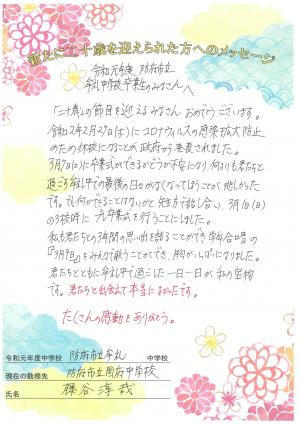 新たに二十歳を迎えられた方へのメッセージ
令和元年度 防府市立
牟礼中学校卒業のみなさんへ
「二十歳」の節目を迎えるみなさん おめでとうございます。
令和2年2月27日(木)にコロナウィルスの感染拡大防止
のための休校になることが政府から発表されました。
3月7日(土)に卒業式ができるかどうか不安になり、何よりも君たちと
過ごす牟礼中での最後の日々がなくなってしまうことが悲しかった
です。でも何ができることはないかと先生方で話し合い、3月1日(日)
の3校時に卒業式を行うことにしました。
私も君たちとの3年間の思い出を語ることができ、学年合唱の
『3月9日』をみんなで歌うことができ、胸がいっぱいになりました。
君たちとともに牟礼中で過ごした一日一日が私の宝物
です。君たちと出会えて本当によかったです。
たくさんの感動をありがとう。
令和元年度中学校 防府市立牟礼 中学校
現在の勤務先 防府市立国府中学校
氏名 藤谷淳哉